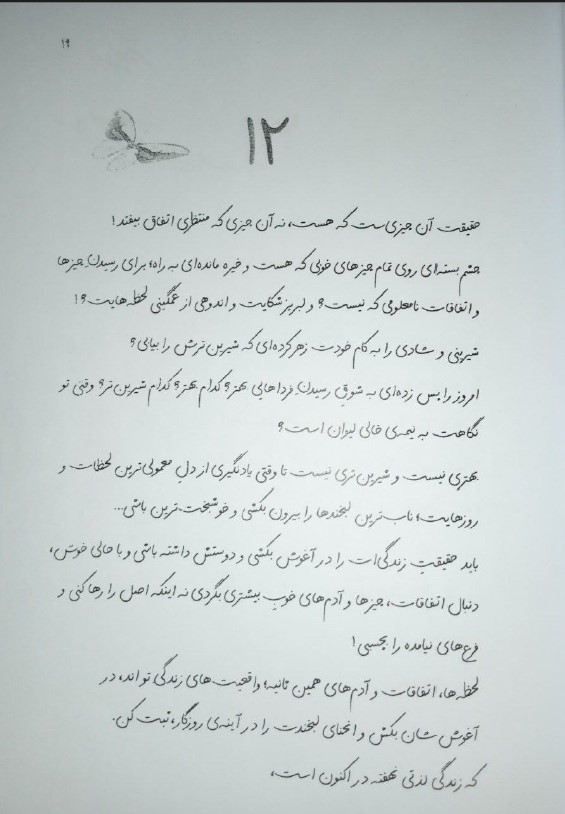 ۱۹
۱۲
حقیقت آن چیزی‌ست که هست، نه آن چیزی که منتظری اتفاق بیفتد!
چشم بسته‌ای روی تمام چیزهای خوبی که هست و خیره مانده‌ای به راه؛ برای رسیدنِ چیزها
و اتفاقات نامعلومی که نیست؟ و لبریز شکایت و اندوهی از غمگینی لحظه‌هایت؟!
شیرینی و شادی را به کام خودت زهر کرده‌ای که شیرین‌ترش را بیابی؟
امروز را پس زده‌ای به شوقِ رسیدنِ فرداهایی بهتر؟ کدام بهتر؟ کدام شیرین‌تر؟ وقتی تو
نگاهت به نیمه‌ی خالی لیوان است؟
بهتری نیست و شیرین‌تری نیست تا وقتی یاد نگیری از دلِ معمولی‌ترین لحظات و
روزهایت، ناب‌ترین لبخندها را بیرون بکشی و خوشبخت‌ترین باشی...
باید حقیقتِ زندگی‌ات را در آغوش بکشی و دوستش داشته باشی و با حالی خوش،
دنبال اتفاقات، چیزها و آدم‌های خوبِ بیشتری بگردی نه اینکه اصل را رها کنی و
فرع‌های نیامده را بچسبی!
لحظه‌ها، اتفاقات و آدم‌های همین ثانیه؛ واقعیت‌های زندگی تو اند، در
آغوش شان بکش و انحنای لبخندت را در آینه‌ی روزگار، ثبت کن.
که زندگی لذتی نهفته در اکنون است،